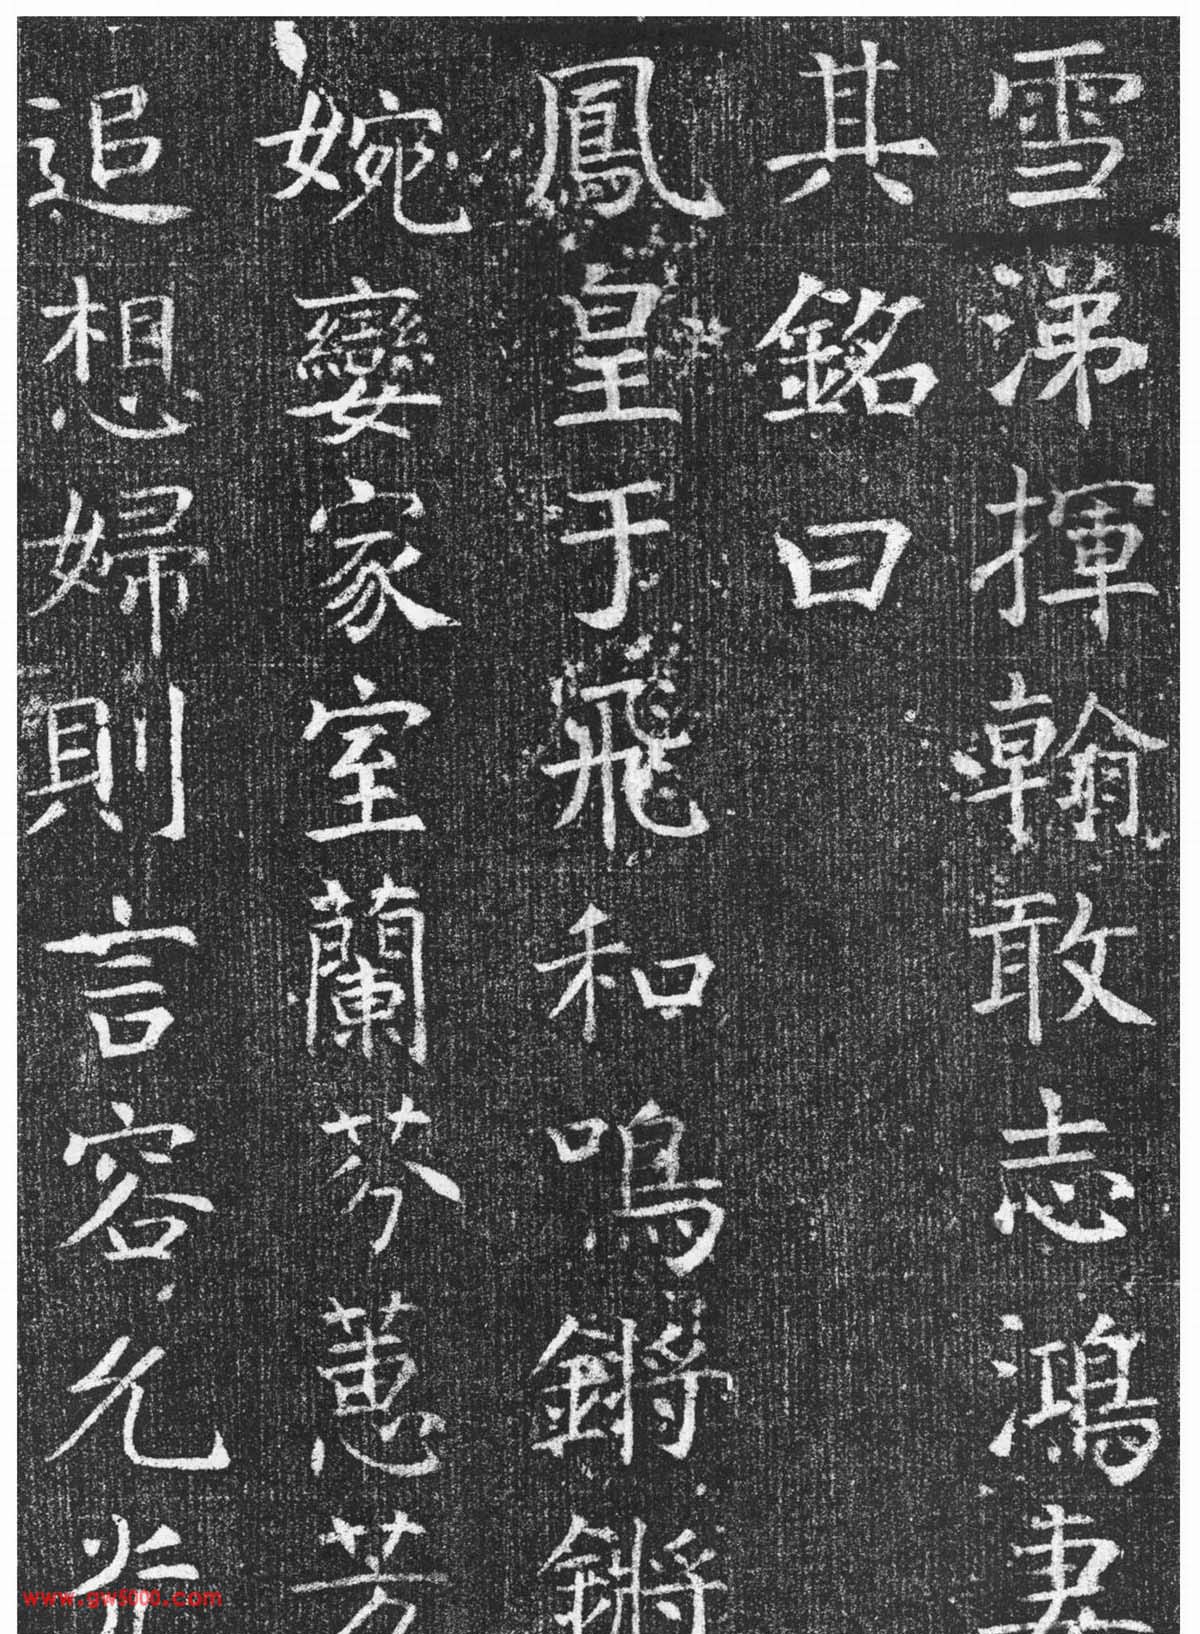 雪涕揮翰敢志鴻妻
其銘曰
鳳皇于飛和鳴鏘鏘
婉孌家室蘭芬蕙芳
追想婦則言容允光
www.gw5000.com